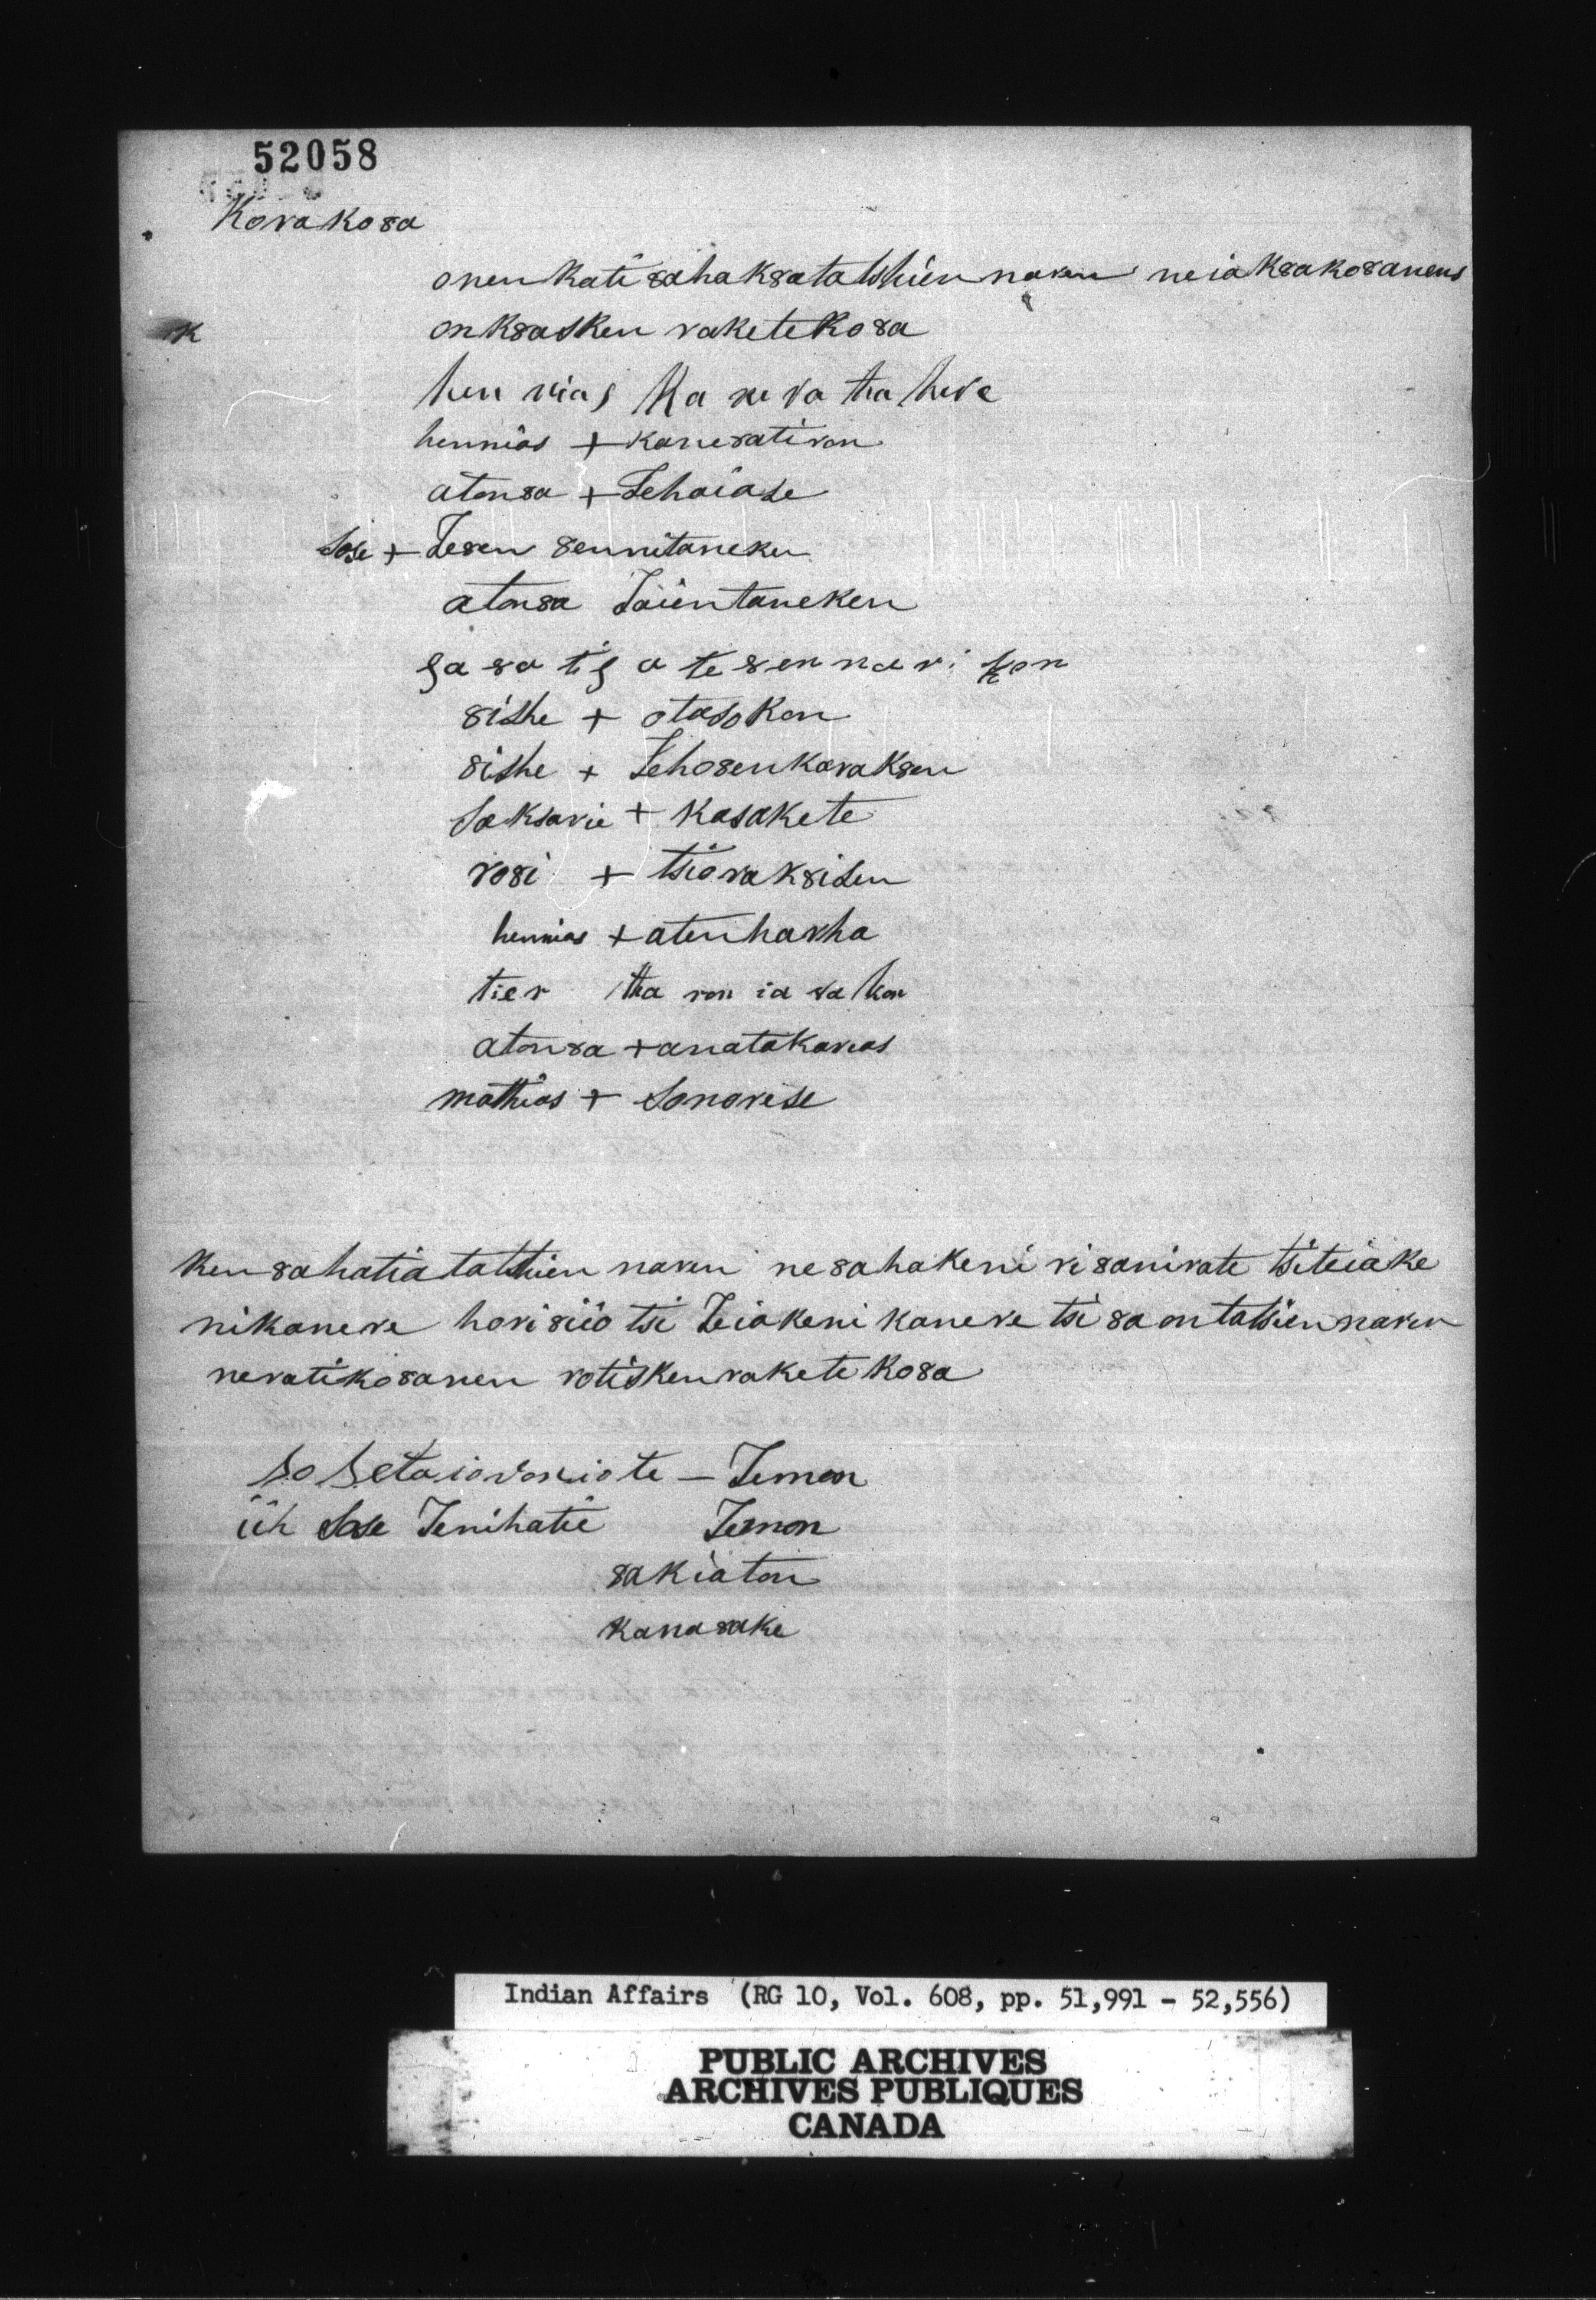 52058
Korako8a
onen kati 8ahak8atatshien naren neiak8ako8anens
K
onk8asken raketeko8a
hen rias Ka ne ra tha here
hennias + kane8atiron
aton8a + Tehaiase
Sose + Te8en 8ennitaneken
aton8a Taientaneken
sa 8a tis a te 8en na ri hon
8ishe + otasokon
8ishe + Teho8enkarak8en
Saksarie + kasakete
ro8i + tsiorak8isen
hennias + atenharha
tier tha ron ia 8a kon
aton8a + anatakarias
mathias + Sonorese
Ken 8ahatiatatshien naren ne8ahakeni ri8anirate tsiteiake
nikanere hori8iio tsi Teiakeni kanere tsi 8aontatsien naren
neratiko8anen rotisken rakete ko8a
So Se taioroniote — Temon
iih Sose Tenihatie Temon
8akiaton
kana8ake
Indian Affairs (RG 10, Vol. 608, pp. 51,991 - 52,556)
PUBLIC ARCHIVES
ARCHIVES PUBLIQUES
CANADA